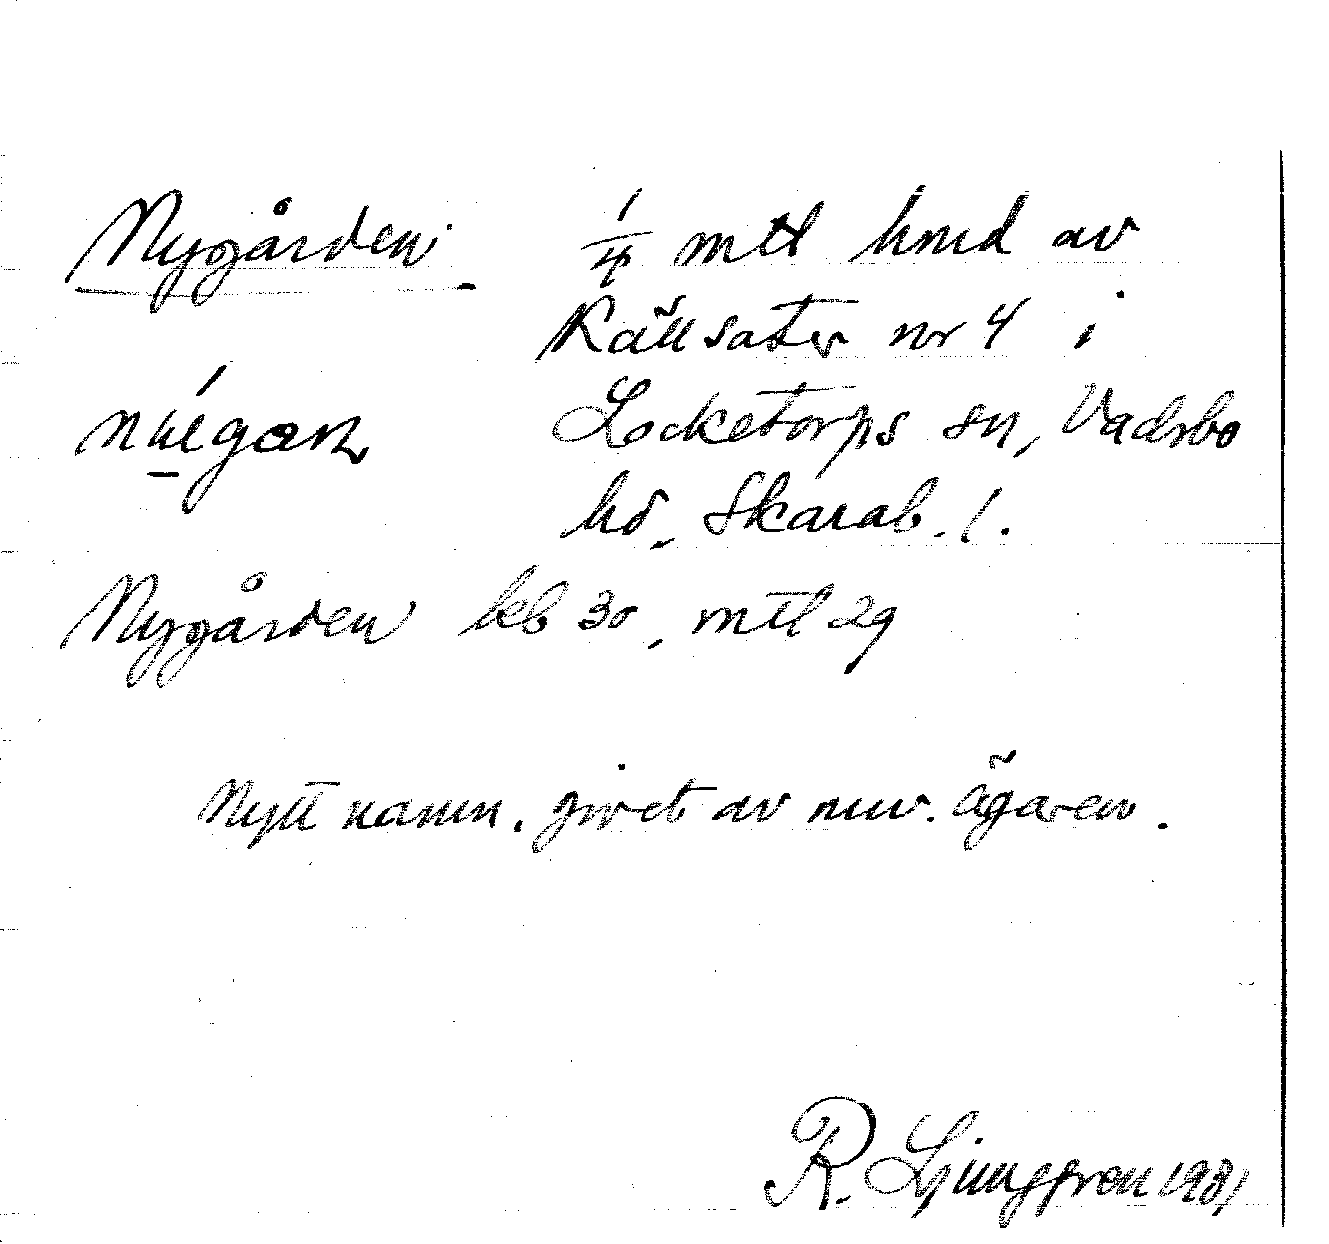 Nygården 1/4 mtl hmd av
Källsäter nr 4 i
Locketorps sn, Vadsbo
hd, Skarab. l.
Nygården kb 30, mtl 29
Nytt namn, givet av nuv. ägaren.
R. Ljunggren 1931